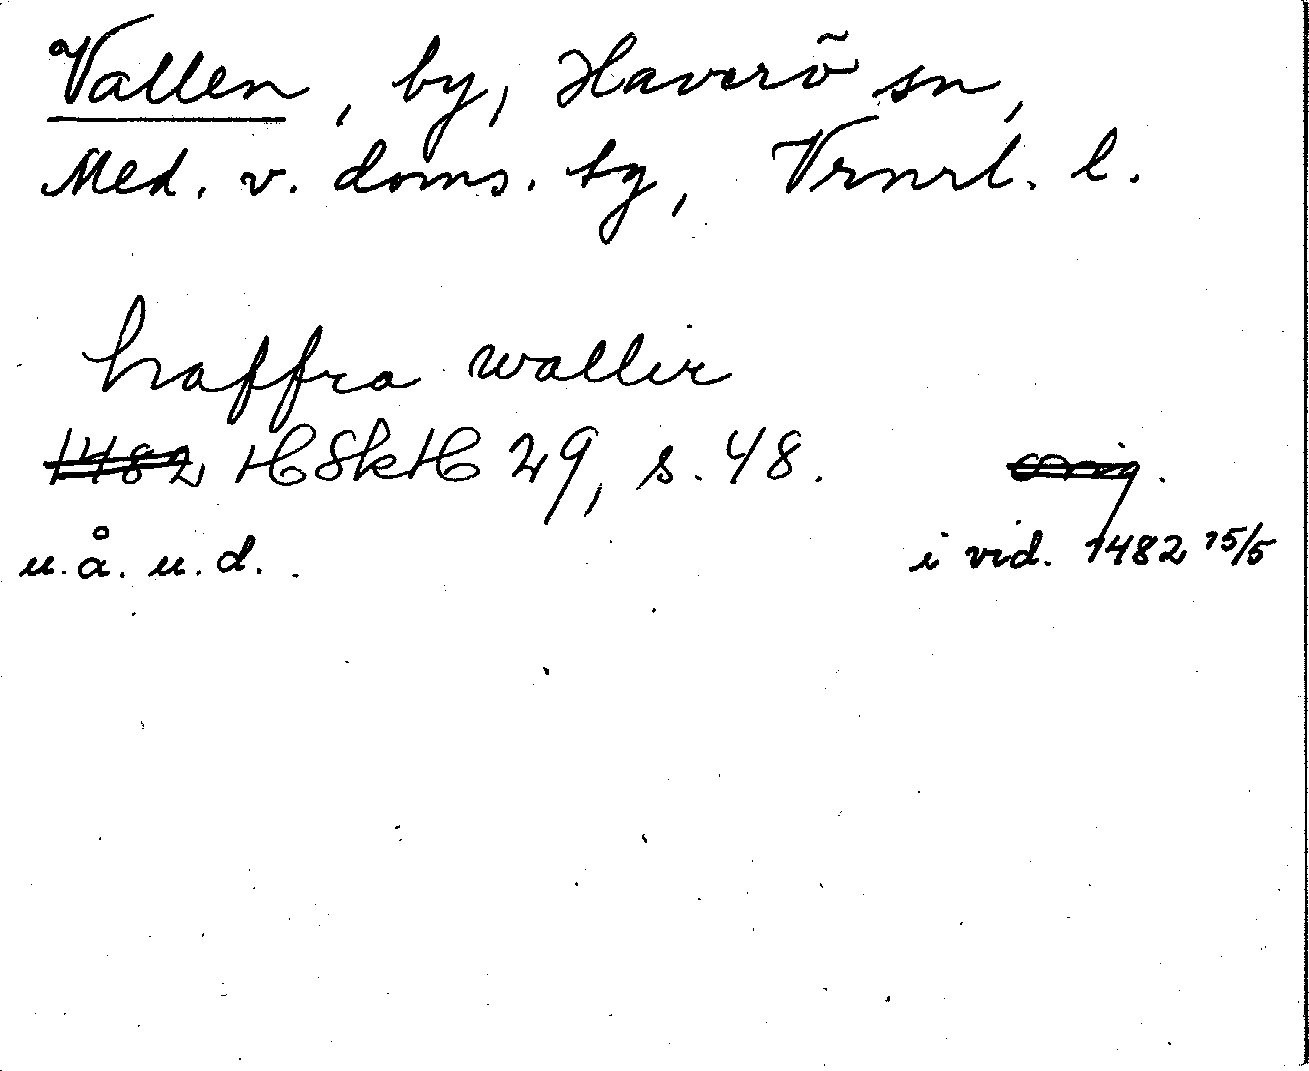 Vallen, by, Haverö sn,
Med. v. doms. tg, Vrnrl. l.
haffra wallir
1482 HSkH 29, s. 48. orig.
u.å. u.d. i vid. 1482 15/5